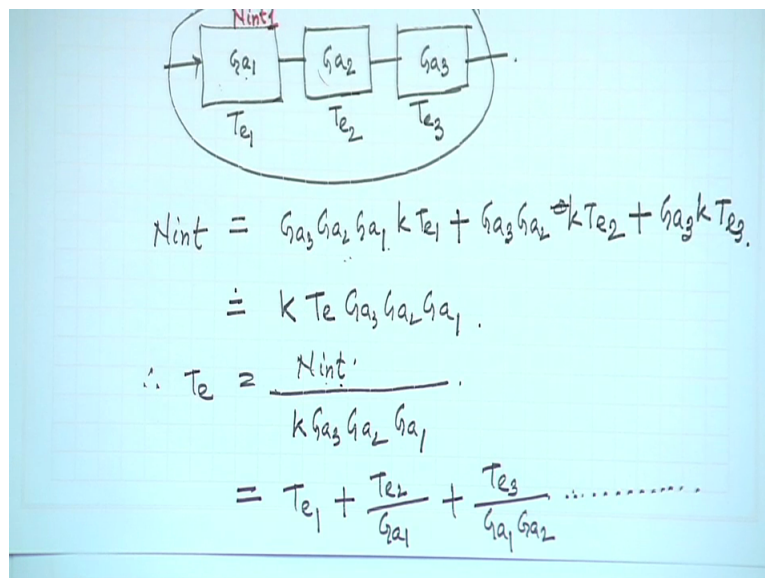 Nint1
Ga1 Ga2 Ga3
Te1 Te2 Te3
Nint = Ga3 Ga2 Ga1 k Te1 + Ga3 Ga2 k Te2 + Ga3 k Te3.
= k Te Ga3 Ga2 Ga1.
∴ Te = Nint / k Ga3 Ga2 Ga1.
= Te1 + Te2/Ga1 + Te3/Ga1 Ga2 ............